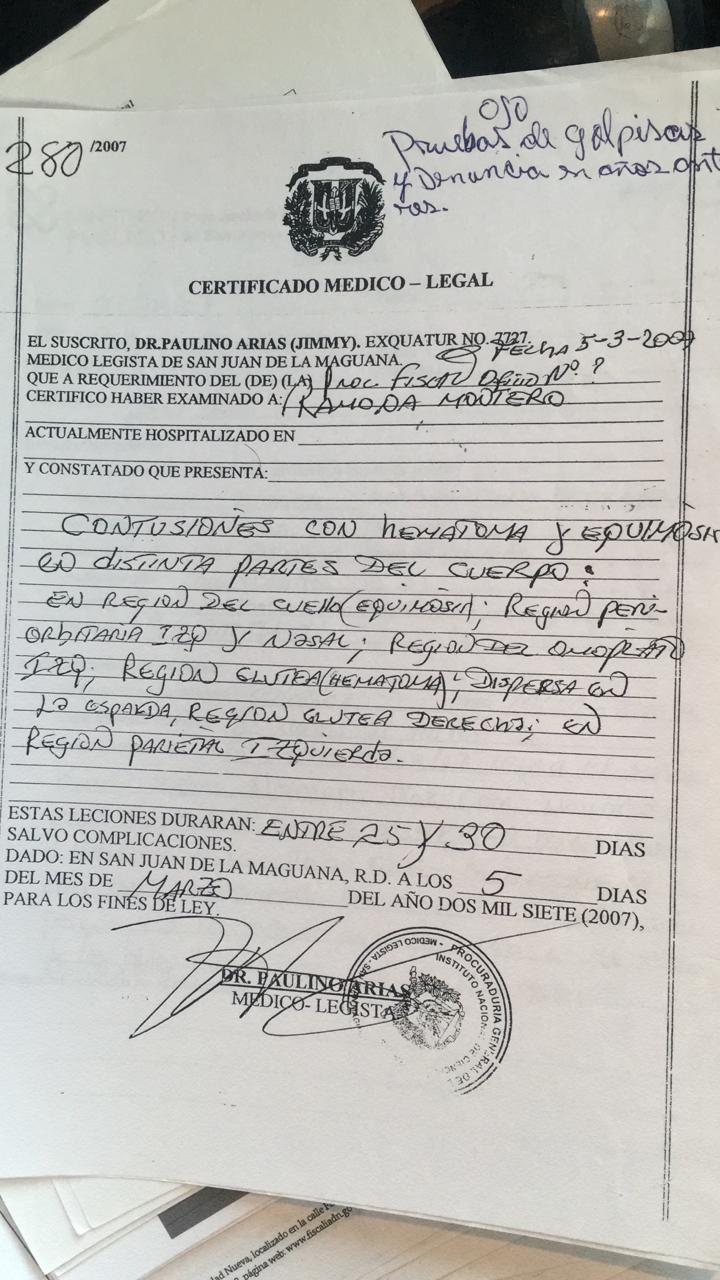 OJO
Pruebas de golpisas
y Denuncia en años ant
ras.
280/2007
CERTIFICADO MEDICO – LEGAL
EL SUSCRITO, DR.PAULINO ARIAS (JIMMY). EXQUATUR NO. 7727.
FECHA 5-3-2007
MEDICO LEGISTA DE SAN JUAN DE LA MAGUANA.
QUE A REQUERIMIENTO DEL (DE) (LA) Proc. Fiscal Oficio Nº. ?
CERTIFICO HABER EXAMINADO A: RAMONA MONTERO
ACTUALMENTE HOSPITALIZADO EN
Y CONSTATADO QUE PRESENTA:
CONTUSIONES CON HEMATOMA Y EQUIMOSIS
EN DISTINTA PARTES DEL CUERPO:
EN REGION DEL CUELLO (EQUIMOSIS); REGION PERI-
ORBITARIA IZQ Y NASAL; REGION DEL OMOPLATO
IZQ; REGION GLUTEA (HEMATOMA); DISPERSA EN
LA ESPALDA, REGION GLUTEA DERECHA; EN
REGION PARIETAL IZQUIERDA.
ESTAS LECIONES DURARAN: ENTRE 25 Y 30 DIAS
SALVO COMPLICACIONES.
DADO: EN SAN JUAN DE LA MAGUANA, R.D. A LOS 5 DIAS
DEL MES DE MARZO DEL AÑO DOS MIL SIETE (2007),
PARA LOS FINES DE LEY.
DR. PAULINO ARIAS
MEDICO- LEGISTA
PROCURADURIA GENERAL DE
INSTITUTO NACIONAL DE CIENC
MEDICO LEGISTA - SA
dad Nueva, localizado en la calle
, página web: www.fiscaliadn.go